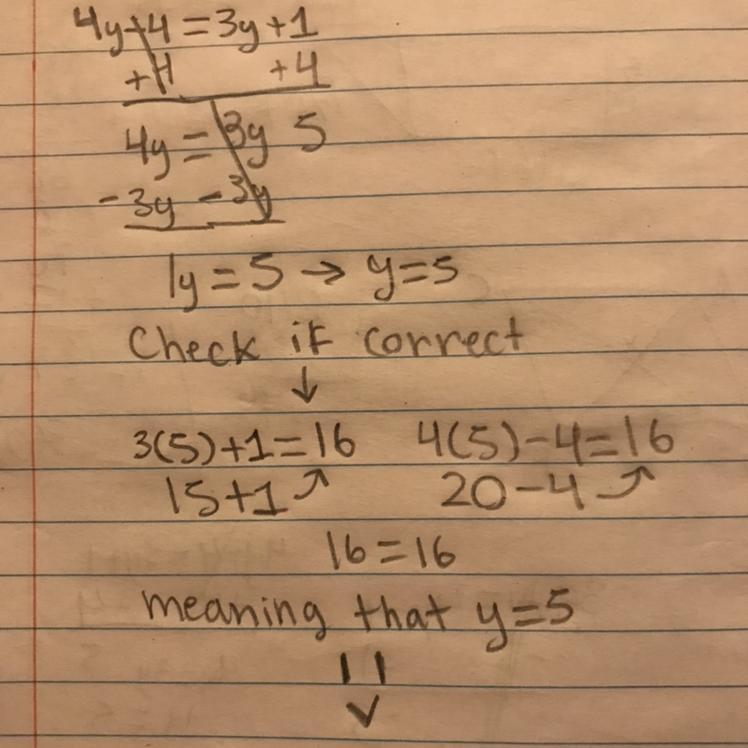 4y-4=3y+1
+4 +4
4y=3y 5
-3y -3y
1y=5→y=5
Check if correct
↓
3(5)+1=16 4(5)-4=16
15+1↗ 20-4↗
16=16
meaning that y=5